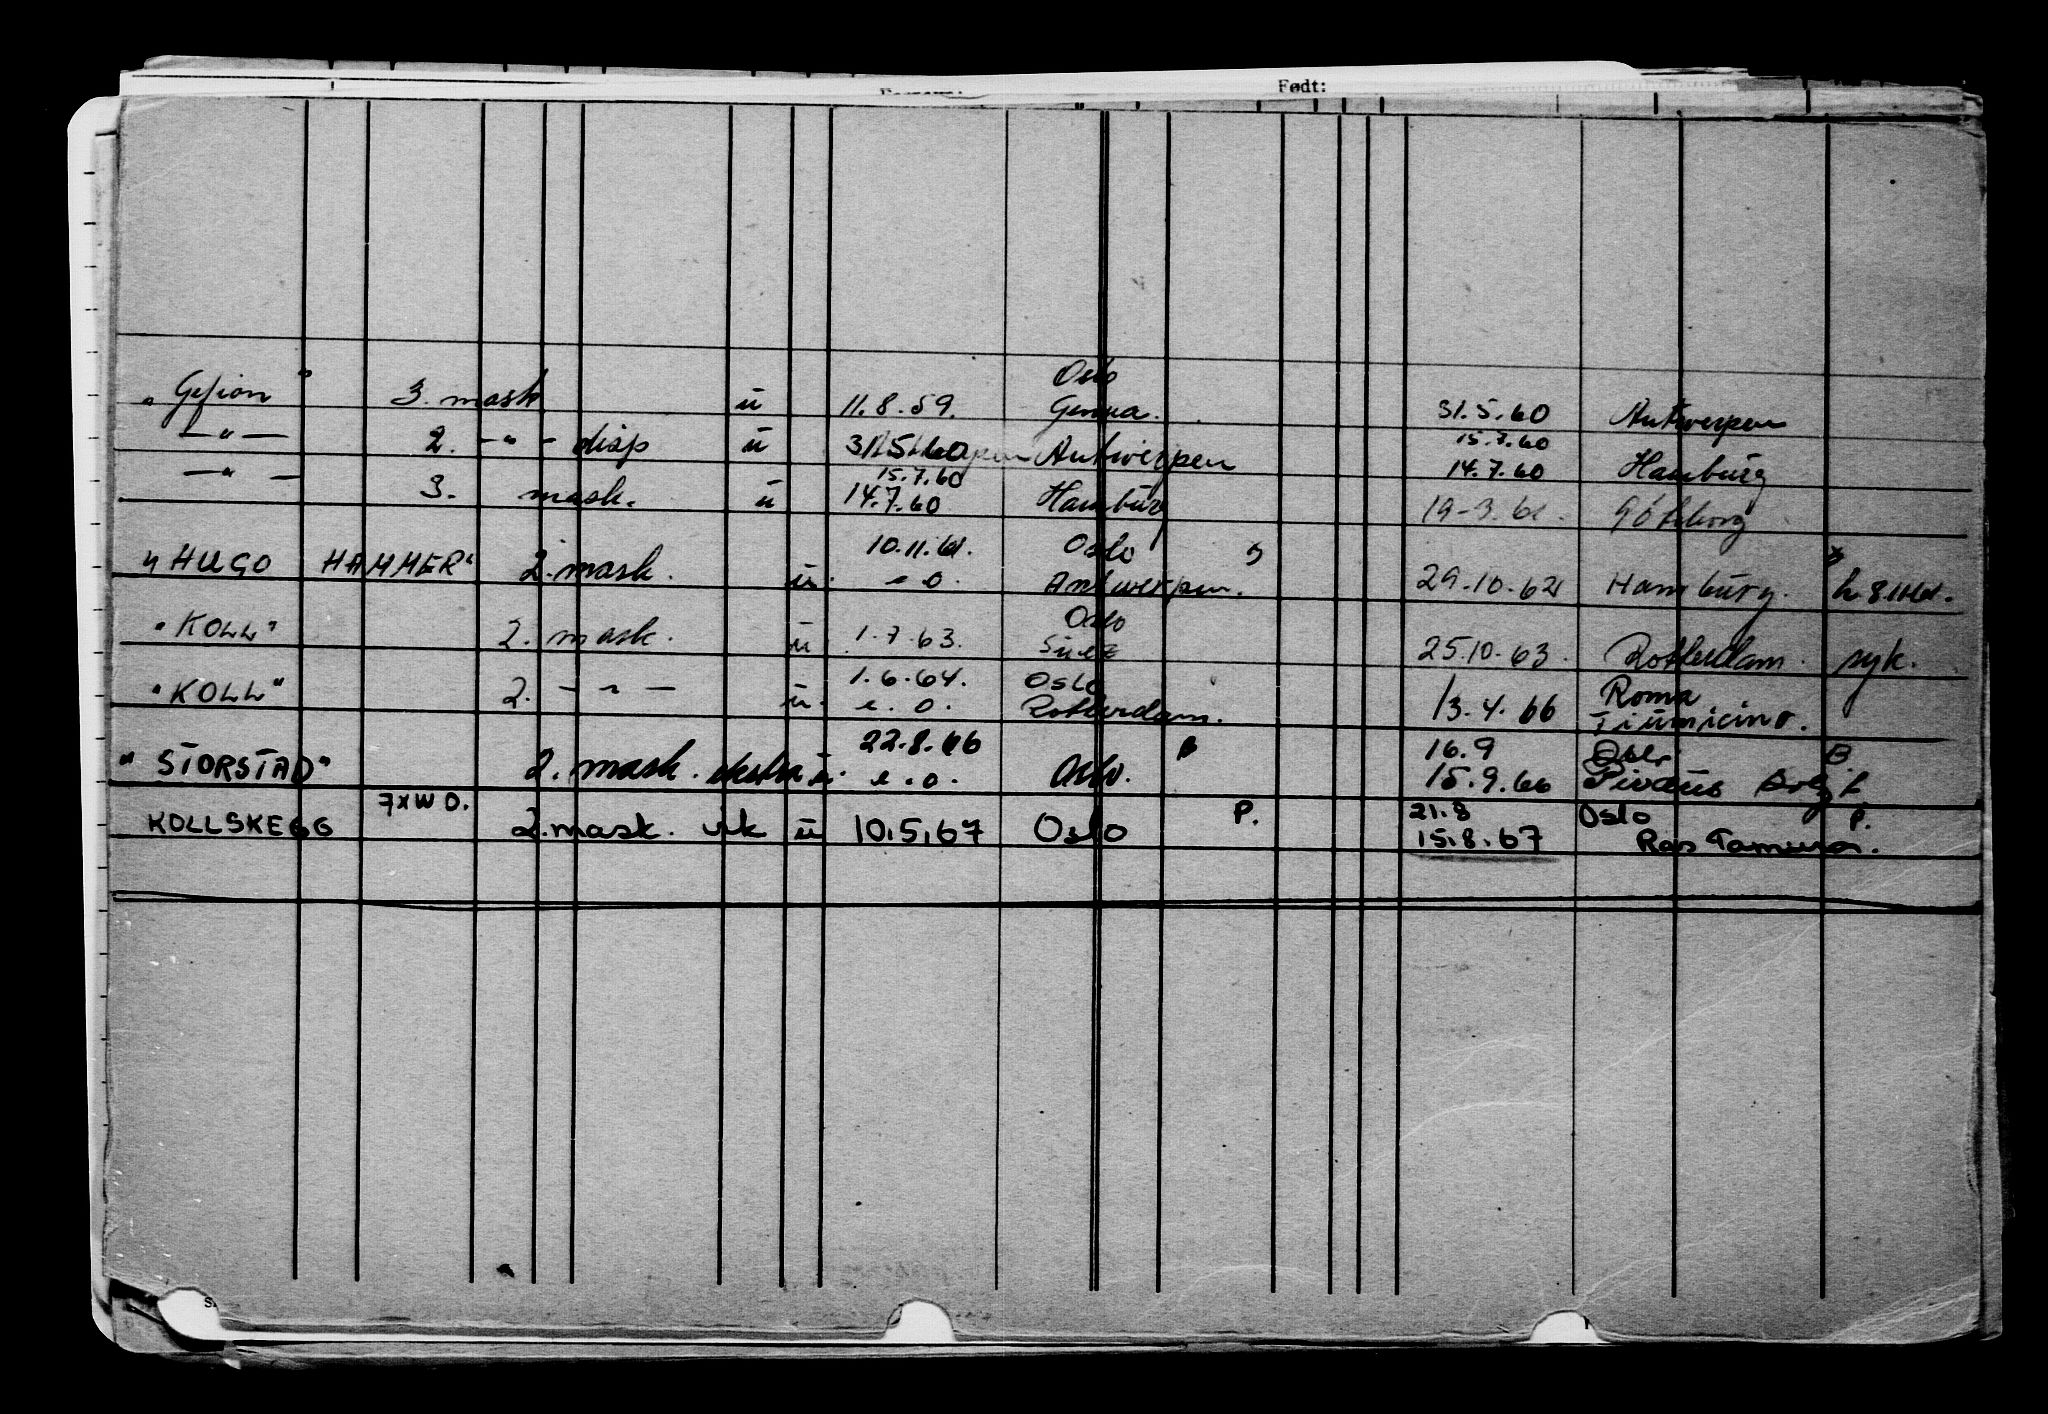 Født:
Oslo
"Gefion" 3. mask ü 11.8.59. Genua. 31.5.60 Antwerpen
15.7.60
— " — 2. - " - disp ü 31.5.60 Antwerpen 14.7.60 Hamburg
15.7.60
— " — 3. mask. ü 14.7.60 Hamburg 19-3.61. Göteborg
10.11.61. Oslo
"HUGO HAMMER" 2. mask. ü. e.o. Antwerpen. 29.10.62 Hamburg.
Oslo
"KOLL" 2. mask. ü 1.7.63. Suez 25.10.63. Rotterdam. syk.
1.6.64. Oslo Roma
"KOLL" 2. - " - ü. e.o. Rotterdam. 13.4.66 Fiumicino.
22.8.66 B 16.9 Oslo B.
"STORSTAD" 2. mask. ekstra ü. e.o. Oslo. 15.9.66 Piræus
7XWO. P. 21.8 Oslo P.
KOLLSKEGG 2. mask. vik ü 10.5.67 Oslo 15.8.67 Ras Tanura.